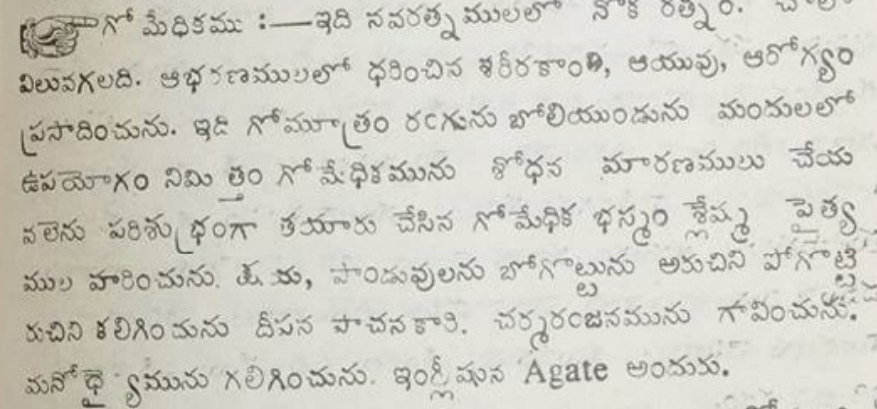 గోమేధికము :—ఇది నవరత్నములలో నొక రత్నం. చాలా
విలువగలది. ఆభరణములలో ధరించిన శరీరకాంతి, ఆయువు, ఆరోగ్యం
ప్రసాదించును. ఇది గోమూత్రం రంగును బోలియుండును మందులలో
ఉపయోగం నిమిత్తం గోమేధికమును శోధన మారణములు చేయ
వలెను పరిశుభ్రంగా తయారు చేసిన గోమేధిక భస్మం శ్లేష్మ పైత్య
ముల హరించును. క్షయ, పాండువులను బోగొట్టును అరుచిని పోగొట్టి
రుచిని కలిగించును దీపన పాచనకారి. చర్మరంజనమును గావించును.
మనోధైర్యమును గలిగించును. ఇంగ్లీషున Agate అందురు.